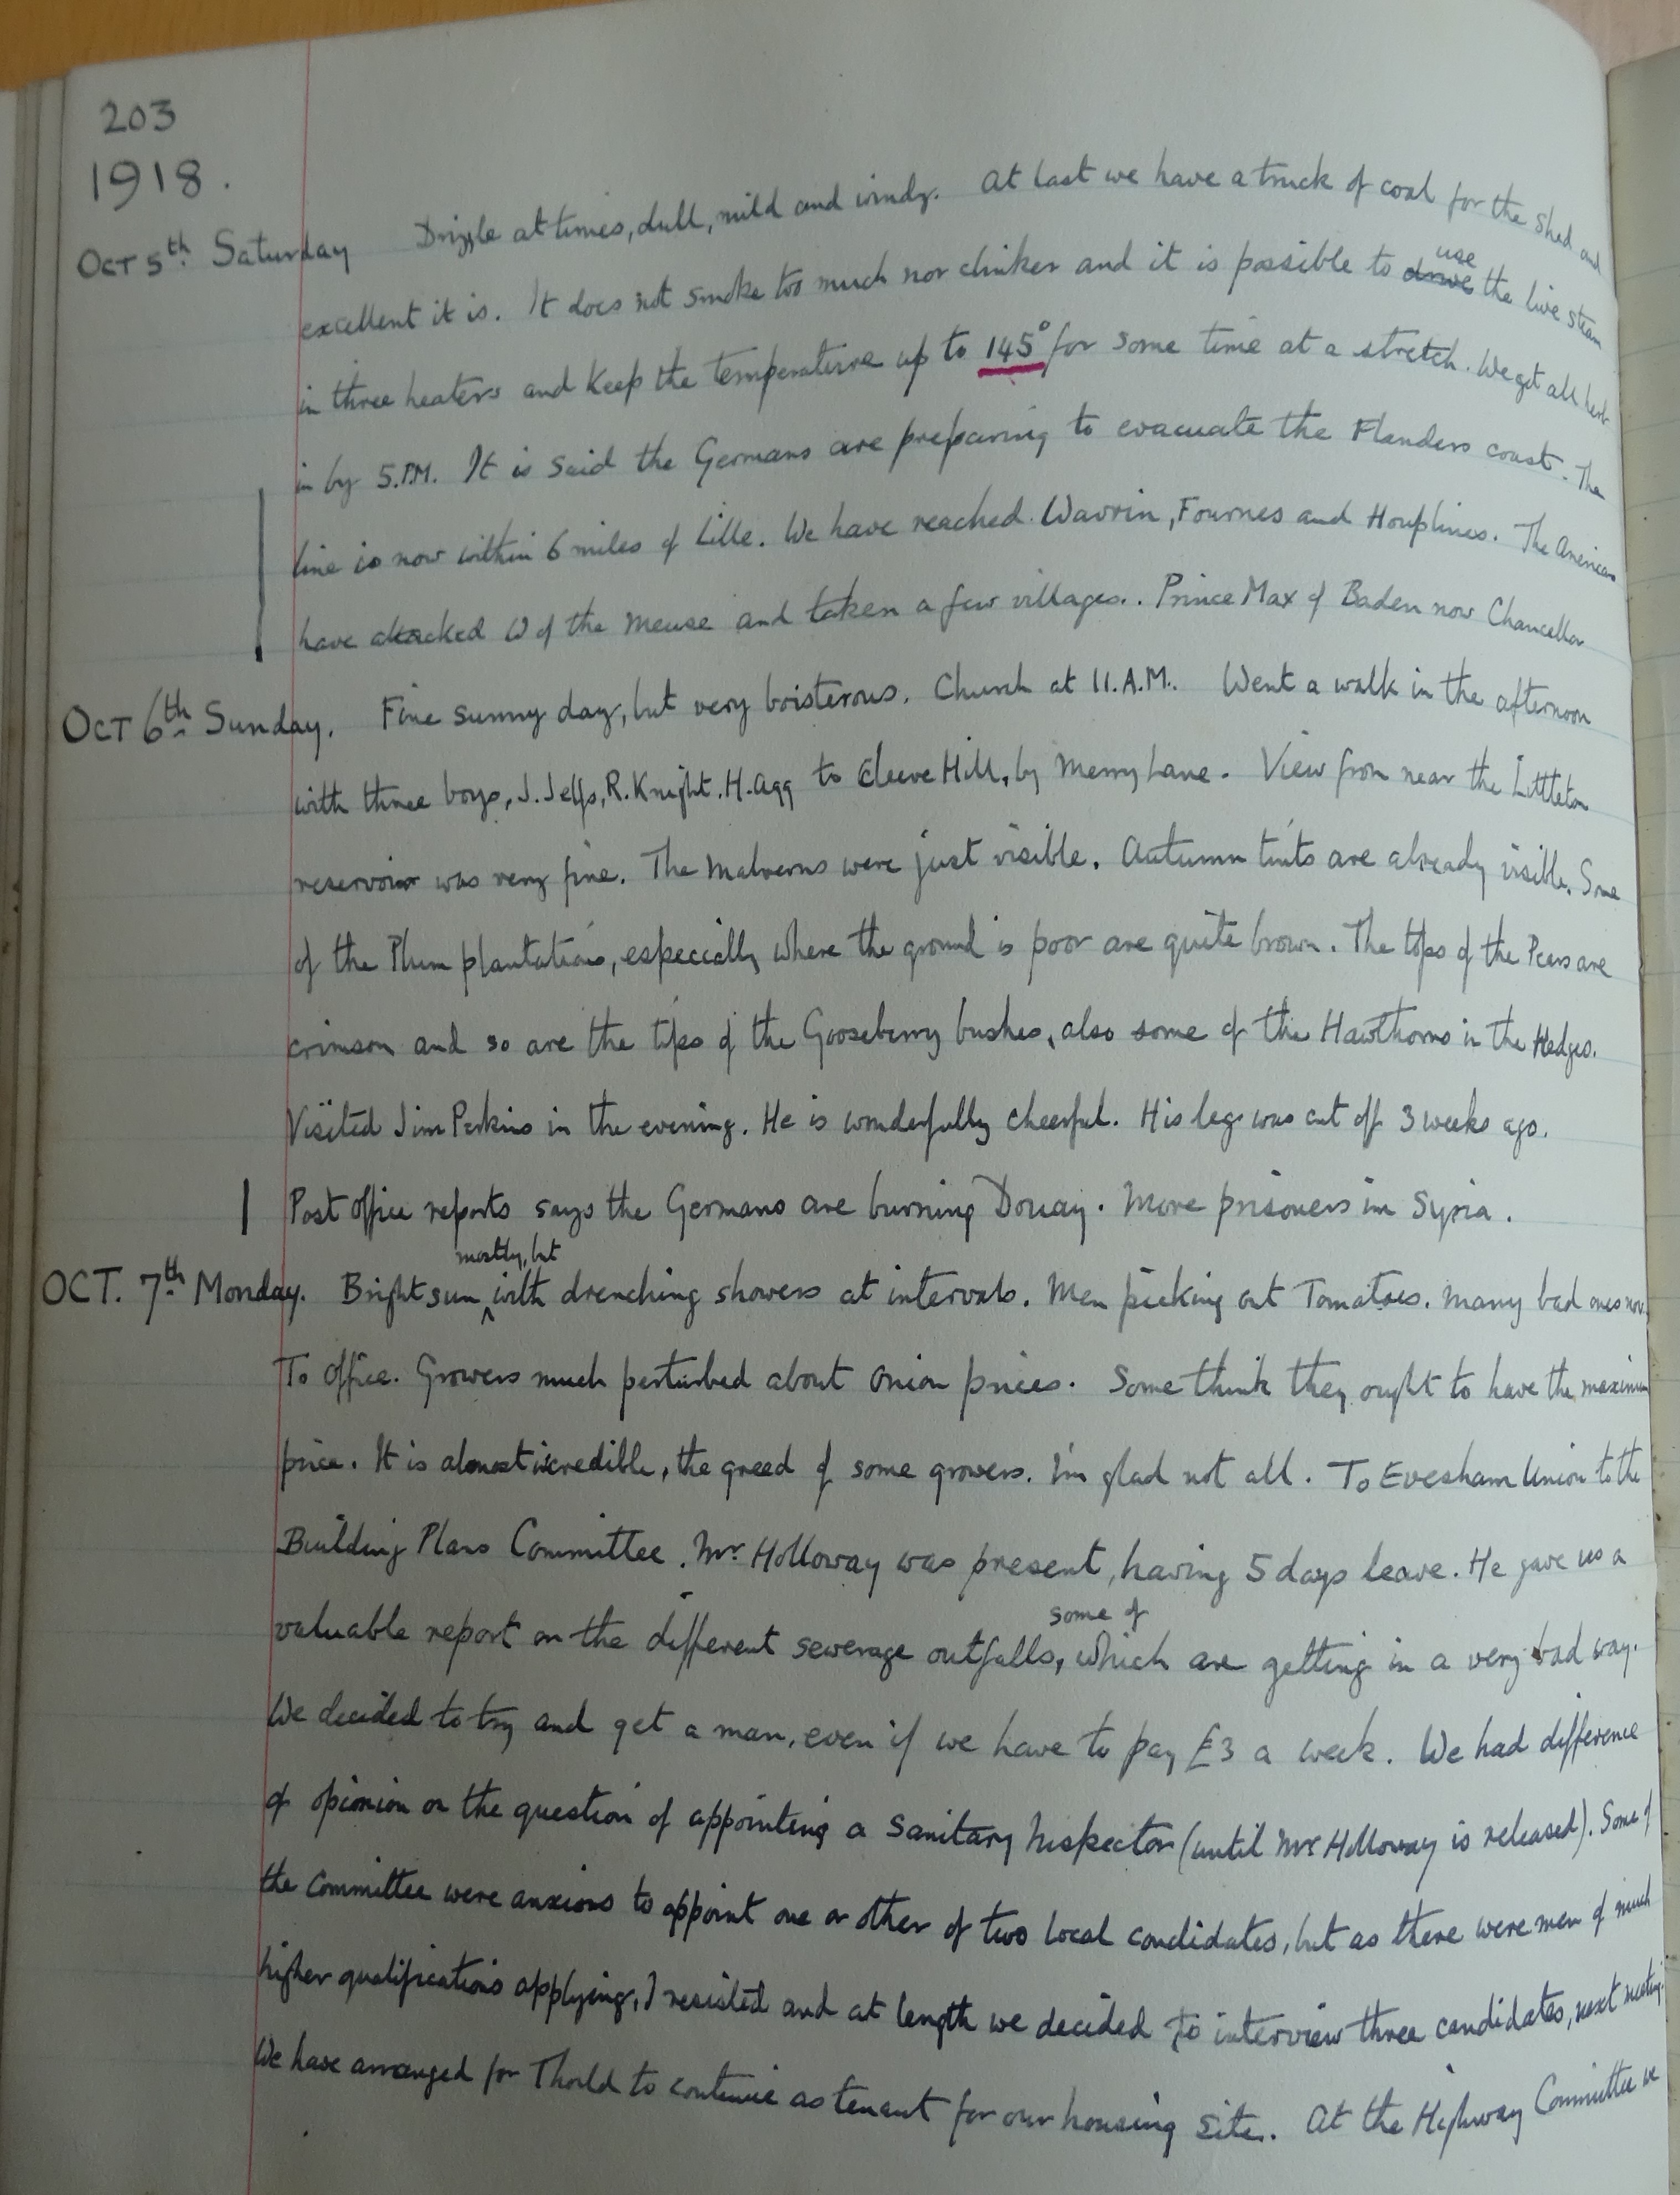 203
1918.
OCT 5th Saturday Drizzle at times, dull, mild and windy. At last we have a truck of coal for the shed and
excellent it is. It does not smoke too much nor clinker and it is possible to use the live steam
in three heaters and keep the temperature up to 145° for some time at a stretch. We get all
in by 5.P.M. It is said the Germans are preparing to evacuate the Flanders coast. The
line is now within 6 miles of Lille. We have reached Wavrin, Fournes and Houplines. The Americans
have attacked W of the Meuse and taken a few villages. Prince Max of Baden now Chancellor
OCT 6th Sunday. Fine sunny day, but very boisterous. Church at 11.A.M. Went a walk in the afternoon
with three boys, J. Jelfs, R. Knight. H. Agg to Cleeve Hill, by Merry Lane. View from near the Littleton
reservoir was very fine. The Malverns were just visible. Autumn tints are already visible. Some
of the Plum plantations, especially where the ground is poor are quite brown. The tops of the Pears are
crimson and so are the tips of the Gooseberry bushes, also some of the Hawthorns in the Hedges.
Visited Jim Perkins in the evening. He is wonderfully cheerful. His leg was cut off 3 weeks ago.
Post office reports says the Germans are burning Douay. More prisoners in Syria.
OCT. 7th Monday. Bright sun mostly, but with drenching showers at intervals. Men picking out Tomatoes. Many bad ones now.
To office. Growers much perturbed about Onion prices. Some think they ought to have the maximum
price. It is almost incredible, the greed of some growers. I'm glad not all. To Evesham Union to the
Building Plans Committee. Mr Holloway was present, having 5 days leave. He gave us a
valuable report on the different sewerage outfalls, some of which are getting in a very bad way.
We decided to try and get a man, even if we have to pay £3 a week. We had difference
of opinion on the question of appointing a Sanitary Inspector (until Mr Holloway is released). Some of
the Committee were anxious to appoint one or other of two local candidates, but as there were men of much
higher qualifications applying, I resisted and at length we decided to interview three candidates, next meeting.
We have arranged for Thould to continue as tenant for our housing site. At the Highway Committee we